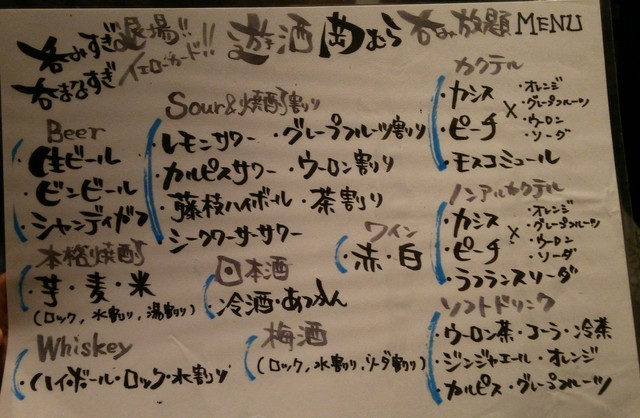 呑みすぎ退場!!
呑まなすぎイエローカード!!
遊酒 岡むら 呑み放題 MENU
Beer
・生ビール
・ビンビール
・シャンディガフ
本格焼酎
・芋・麦・米
(ロック, 水割り, 湯割り)
Whiskey
・ハイボール・ロック・水割り
Sour&焼酎割り
・レモンサワー ・グレープフルーツ割り
・カルピスサワー ・ウーロン割り
・藤枝ハイボール ・茶割り
・シークワーサーサワー
日本酒
・冷酒・あつかん
ワイン
・赤・白
梅酒
(ロック, 水割り, ソーダ割り)
カクテル
・カシス
・ピーチ
×
・オレンジ
・グレープフルーツ
・ウーロン
・ソーダ
・モスコミュール
ノンアルカクテル
・カシス
・ピーチ
×
・オレンジ
・グレープフルーツ
・ウーロン
・ソーダ
・ラフランスソーダ
ソフトドリンク
・ウーロン茶・コーラ・冷茶
・ジンジャエール・オレンジ
・カルピス・グレープフルーツ